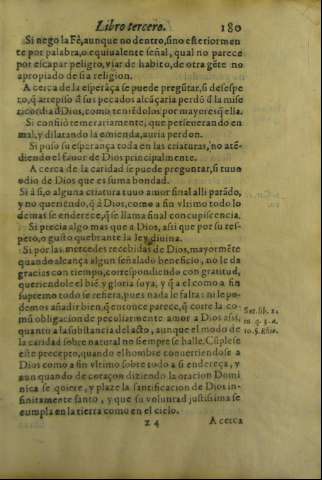 Libro tercero. 180
Si nego la Fè, aunque no dentro, sino esteriormen
te por palabra, o equiualente señal, qual no parece
por escapar peligro, vsar de habito, de otra gẽte no
apropiado de su religion.
A cerca de la esperãça se puede pregũtar, si desespe
to, q̃ arrepiso d̃ sus pecados alcãçaria perdõ d̃ la mise
ricordia d̃ Dios, como teniẽdolos por mayores q̃ ella.
Si confiò temerariamente, que perseuerando en
mal, y dilatando la emienda, auria perdon.
Si puso su esperança toda en las criaturas, no atẽ-
diendo el fauor de Dios principalmente.
A cerca de la caridad se puede preguntar, si tuuo
odio de Dios que es suma bondad.
Si à si, o alguna criatura tuuo amor final alli parãdo,
y no queriendo, q̃ à Dios, como a fin vltimo todo lo
demas se enderece, q̃ se llama final concupiscencia.
Si precia algo mas que a Dios, assi que por su res-
peto, o gusto quebrante la ley diuina.
Si por las mercedes recebidas de Dios, mayormẽte
quando alcança algun señalado beneficio, no le da
gracias con tiempo, correspondiendo con gratitud,
queriendole el biẽ, y gloria suya, y q̃ a el como a fin
supremo todo se refiera, pues nada le falta: ni le po-
demos añadir bien, q̃ entonce parece, q̃ corre la co-
mũ obligacion de peculiarmente amar a Dios assi,
quanto a la substancia del acto, aunque el modo de
la caridad sobre natural no siempre se halle. Cũplese
este precepto, quando el hombre conuertiendose a
Dios como a fin vltimo sobre todo a si endereça, y
aun quando de coraçon diziendo la oracion Domi
nica se quiere, y plaze la santificacion de Dios in-
finitamente santo, y que su voluntad justissima se
cumpla en la tierra como en el cielo.
Z 4 A cerca